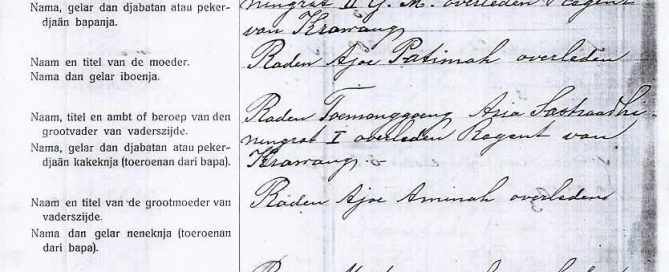 Nama, gelar dan djabatan atau peker-
djaän bapanja.
ningrat II G. M. overleden Regent
van Krawang
Naam en titel van de moeder.
Nama dan gelar iboenja.
Raden Ajoe Patimah overleden
Naam, titel en ambt of beroep van den
grootvader van vaderszijde.
Nama, gelar dan djabatan atau peker-
djaän kakeknja (toeroenan dari bapa).
Raden Toemonggoeng Aria Sastraadhi-
ningrat I overleden Regent van
Krawang.
Naam en titel van de grootmoeder van
vaderszijde.
Nama dan gelar neneknja (toeroenan
dari bapa).
Raden Ajoe Aminah overleden